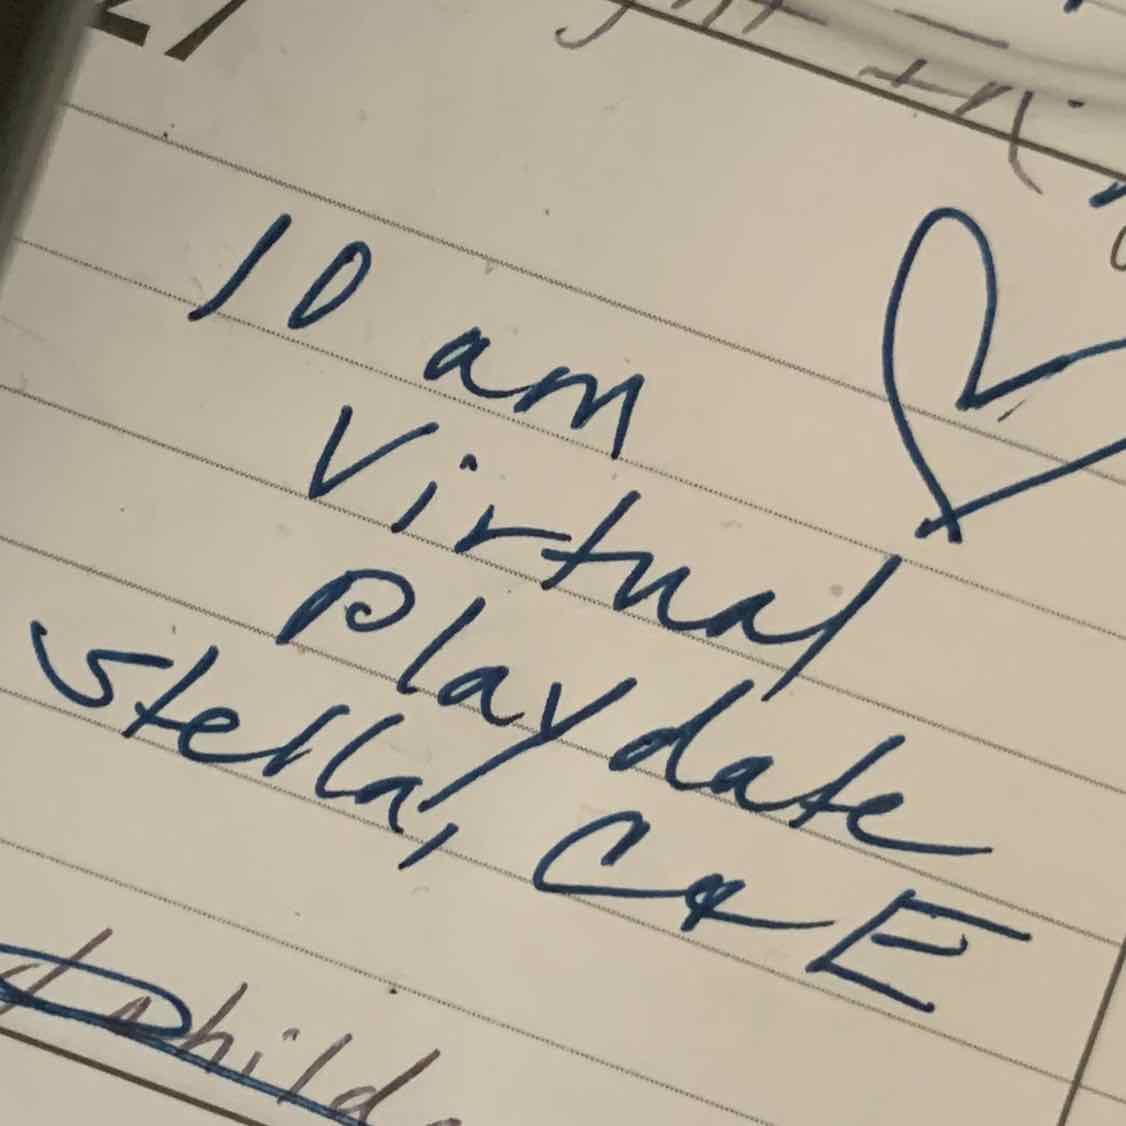 10 am
Virtual
Playdate
Stella, C & E
child